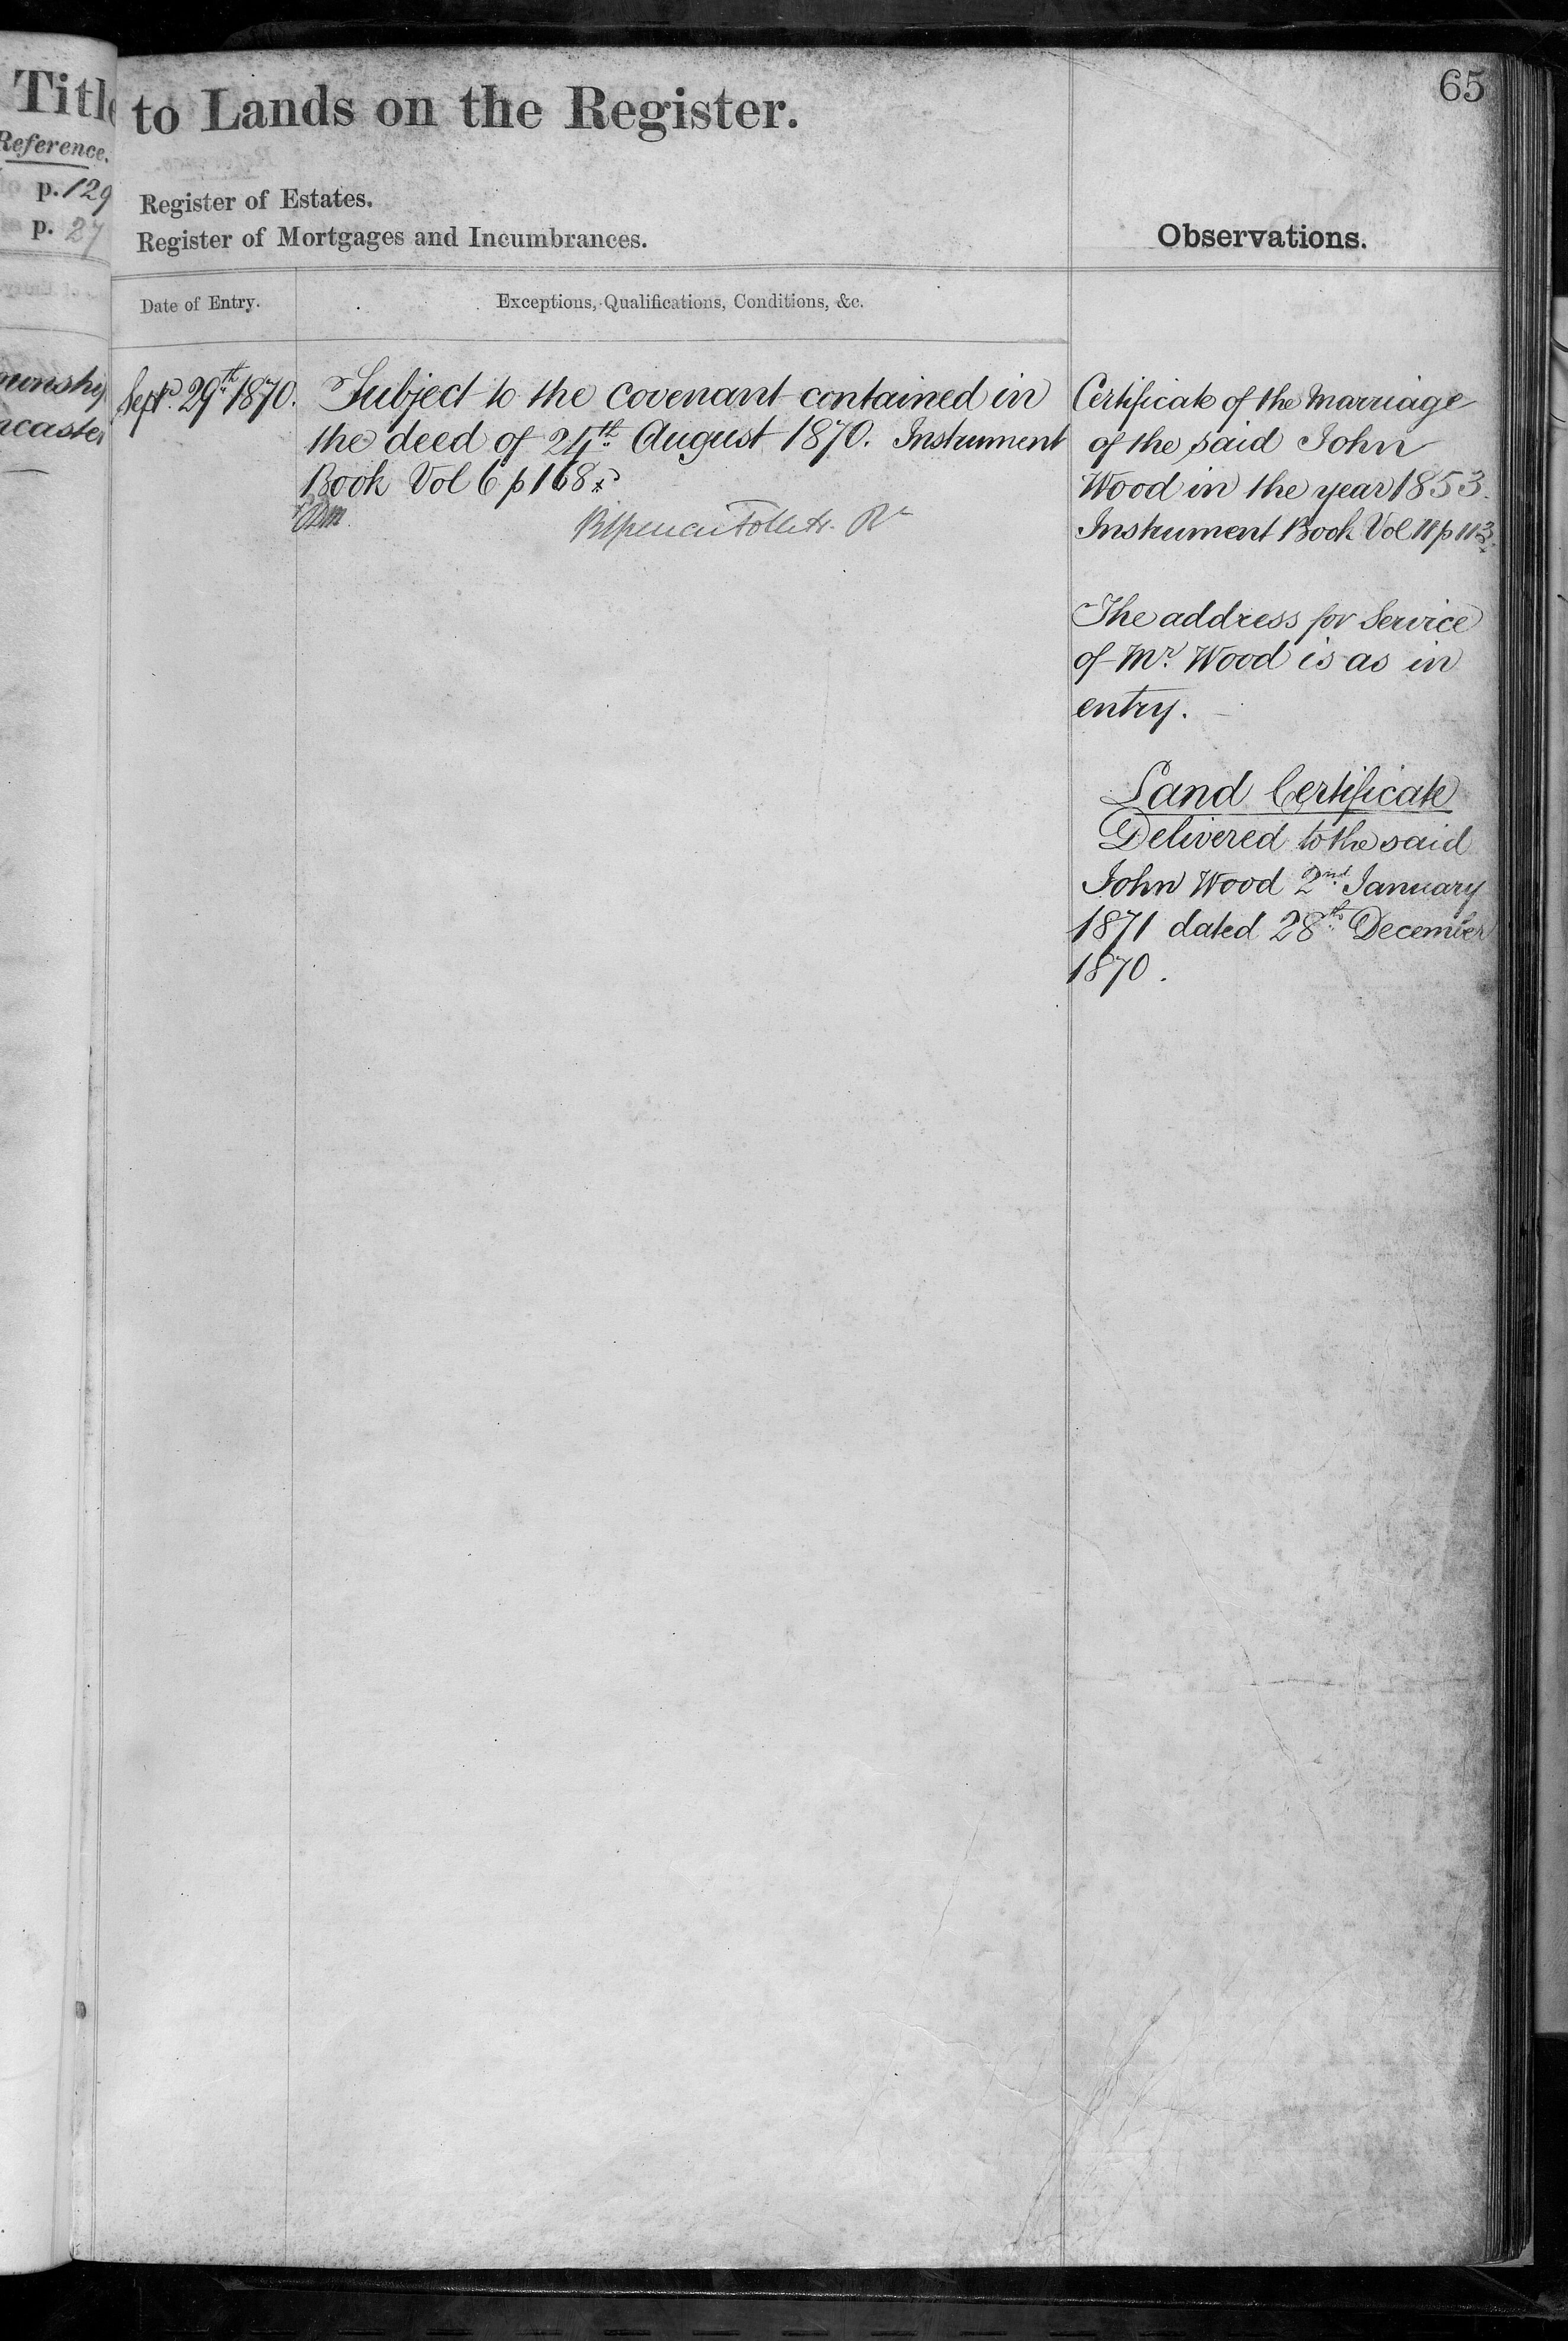 65
Title
Reference.
p. 129
p. 27
to Lands on the Register.
Register of Estates.
Register of Mortgages and Incumbrances.
Observations.
Date of Entry.
Exceptions, Qualifications, Conditions, &c.
Sept. 29th 1870.
Subject to the covenant contained in
the deed of 24th August 1870. Instrument
Book Vol 6 p 168
Certificate of the Marriage
of the said John
Wood in the year 1853.
Instrument Book Vol 11 p 113
The address for Service
of Mr. Wood is as in
entry.
Land Certificate
Delivered to the said
John Wood 2nd January
1871 dated 28th December
1870.